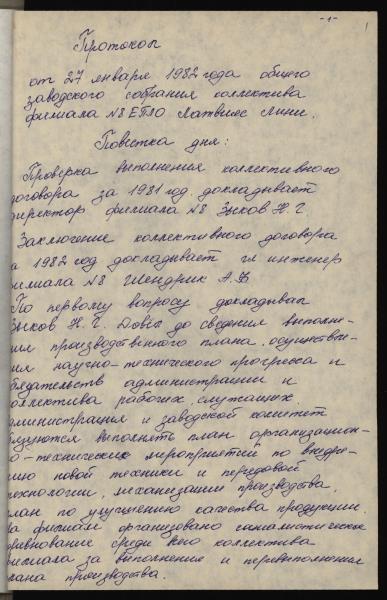 -1-
Протокол
от 27 января 1982 года общего
заводского собрания коллектива
филиала №8 ЕПЛО Латвияс Линс.
Повестка дня:
Проверка выполнения коллективного
договора за 1981 год. докладывает
директор филиала №8 Зыков Н.Г.
Заключение коллективного договора
а 1982 год докладывает гл инженер
илиала №8 Шендрик А.Ф
По первому вопросу докладывал
Зыков Н.Г. Довёл до сведения выполне-
ия производственного плана, осуществле-
ия научно-технического прогресса и
бязательств администрации и
оллектива рабочих, служащих.
дминистрация и заводской комитет
бязуются выполнять план организацион-
о-технических мероприятий по внедре-
ию новой техники и передовой
ехнологии, механизации производства,
лан по улучшению качества продукции.
а филиале организовано социалистическое
оревнование среди всего коллектива
илиала за выполнение и перевыполнение
лана производства.